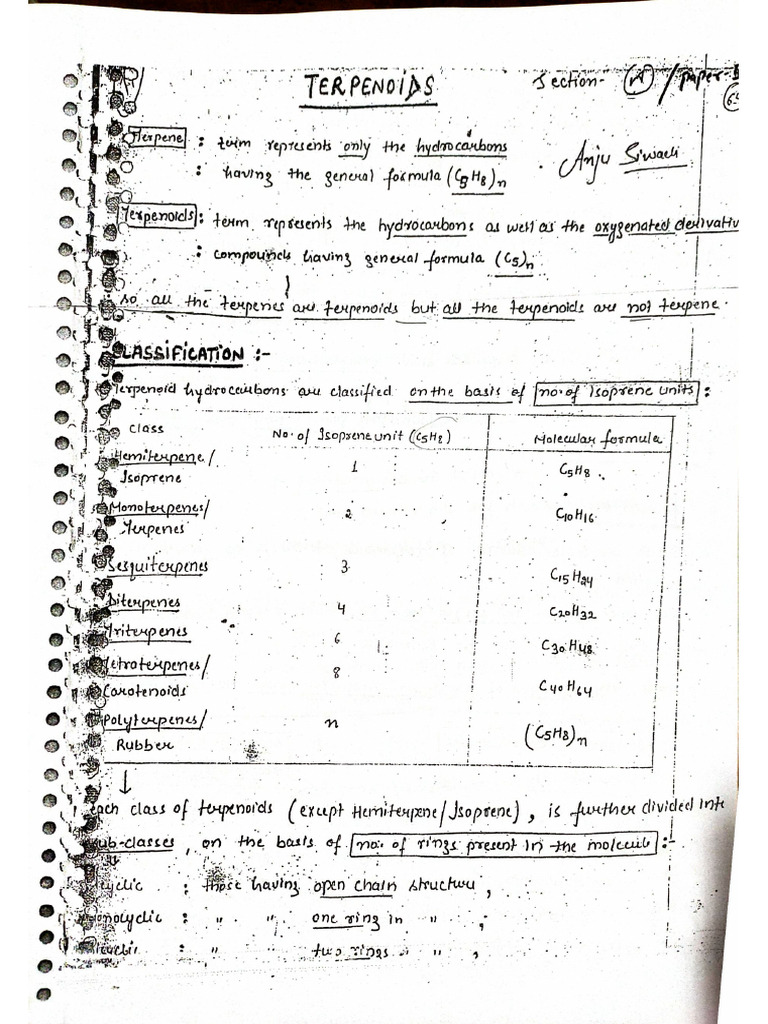 TERPENOIDS
Section- / paper-
Terpene : term represents only the hydrocarbons
: having the general formula (C5H8)n
Anju Siwach
Terpenoids : term represents the hydrocarbons as well as the oxygenated derivativ
: compounds having general formula (C5)n
so all the terpenes are terpenoids but all the terpenoids are not terpene.
CLASSIFICATION :-
Terpenoid hydrocarbons are classified on the basis of no. of Isoprene units :
Class No. of Isoprene unit (C5H8) Molecular formula
Hemiterpene/
Isoprene 1 C5H8
Monoterpenes/ 2 C10H16
Terpenes
Sesquiterpenes 3 C15H24
Diterpenes 4 C20H32
Triterpenes 6 C30H48
Tetroterpenes/ 8 C40H64
Carotenoids
Polyterpenes/ n (C5H8)n
Rubber
each class of terpenoids (except Hemiterpene/Isoprene), is further divided into
sub-classes, on the basis of no. of rings present in the molecule :-
cyclic : those having open chain structure,
monocyclic : " " one ring in " ,
: " " two rings " " ,